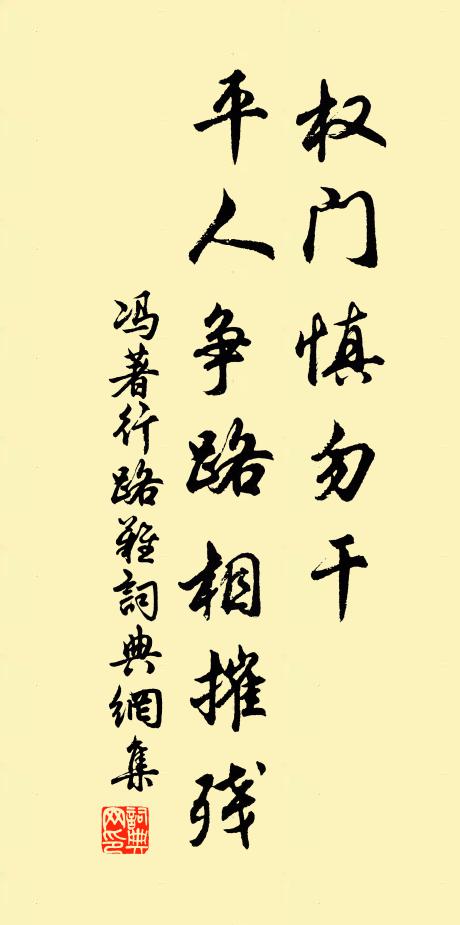 权门慎勿干
平人争路相摧残
冯著行路难詞典網集
詞典网印